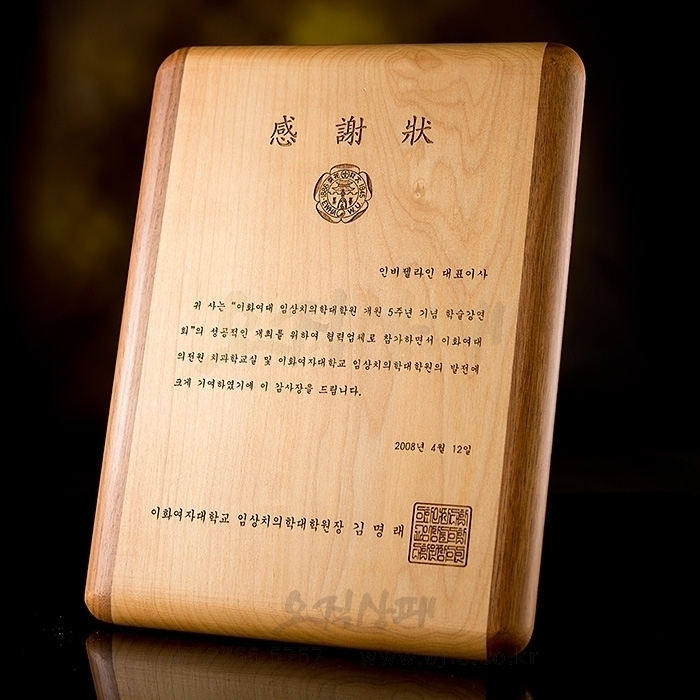 感謝狀
인비젤라인 대표이사
귀 사는 "이화여대 임상치의학대학원 개원 5주년 기념 학술강연
회"의 성공적인 개최를 위하여 협력업체로 참가하면서 이화여대
의전원 치과학교실 및 이화여자대학교 임상치의학대학원의 발전에
크게 기여하였기에 이 감사장을 드립니다.
2008년 4월 12일
이화여자대학교 임상치의학대학원장 김명래
오직상패